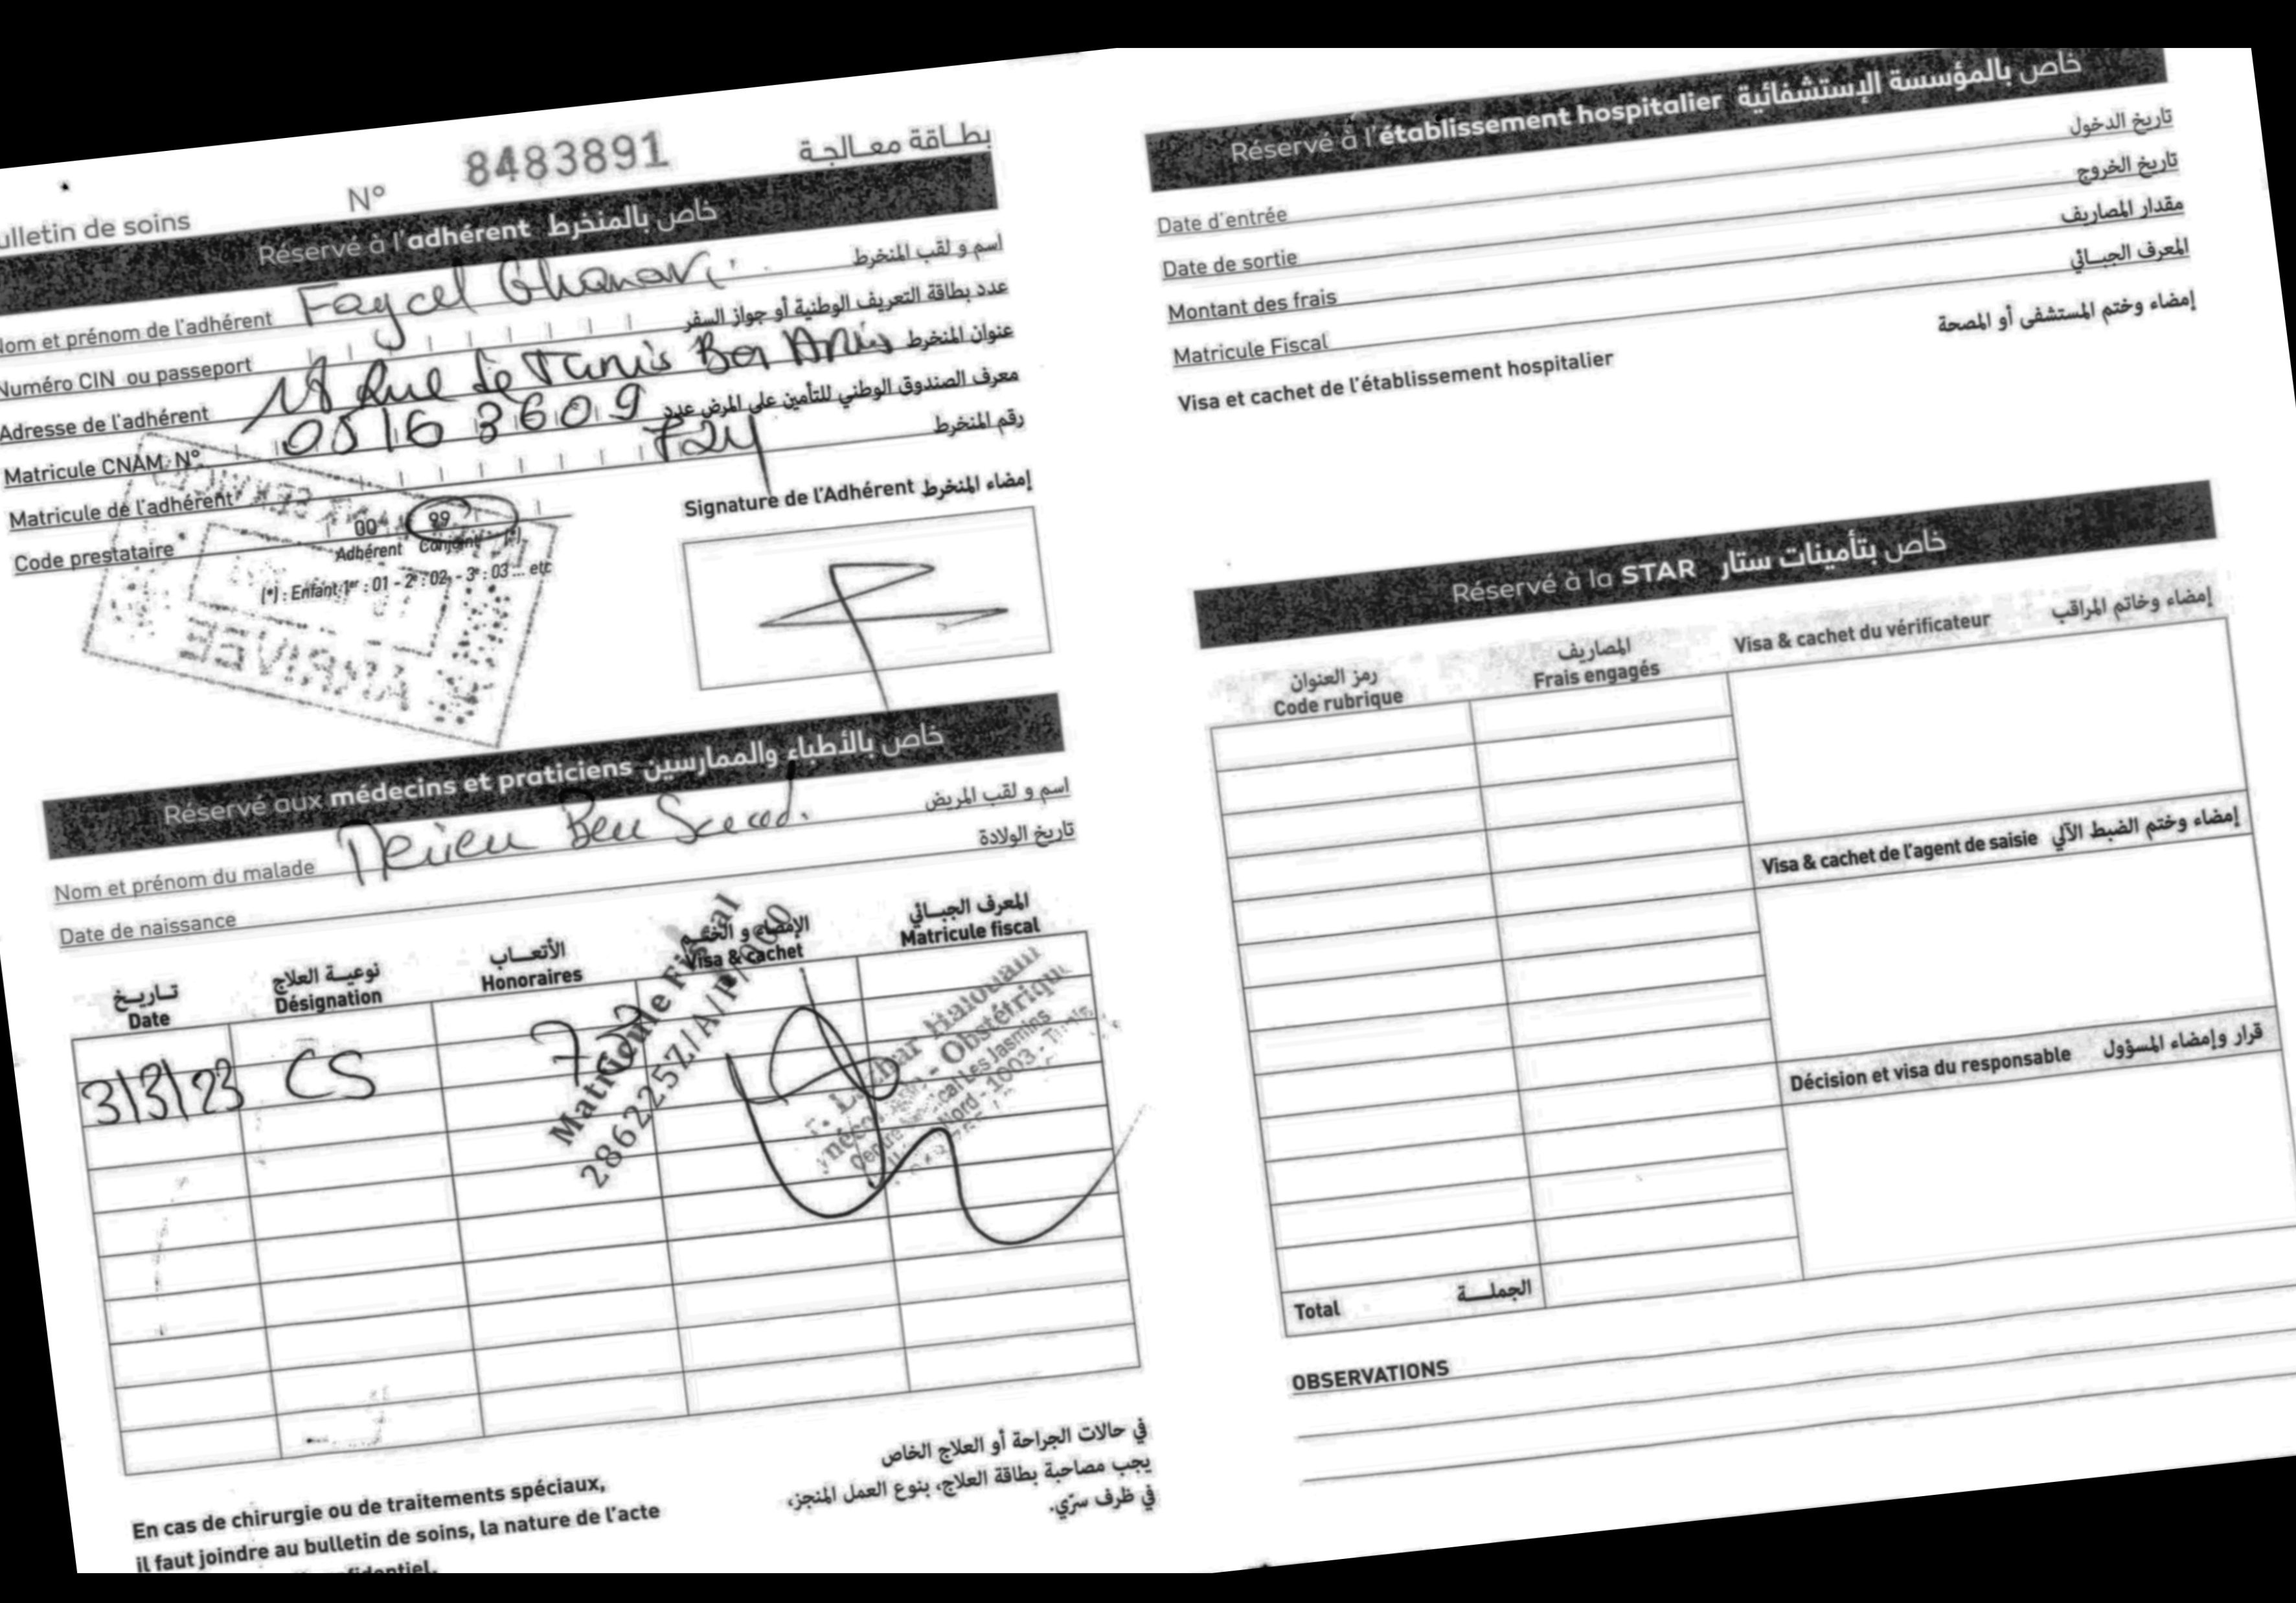 بطـاقة معـالجـة
N° 8483891
ulletin de soins
Réservé à l'adhérent خاص بالمنخرط
Nom et prénom de l'adhérent Faycel اسم و لقب المنخرط
Numéro CIN ou passeport عدد بطاقة التعريف الوطنية أو جواز السفر
Adresse de l'adhérent 18 Rue de Tunis Ben Arous عنوان المنخرط
Matricule CNAM N° 05163609 معرف الصندوق الوطني للتأمين على المرض عدد
Matricule de l'adhérent 724 رقم المنخرط
Code prestataire 00 99
Adhérent Conjoint (*)
(*) : Enfant 1er : 01 - 2e : 02 - 3e : 03 ... etc
Signature de l'Adhérent إمضاء المنخرط
Réservé aux médecins et praticiens خاص بالأطباء والممارسين
Nom et prénom du malade Ben اسم و لقب المريض
Date de naissance تاريخ الولادة
تـاريـخ نوعيـة العلاج الأتعــاب الإمضاء و الختـم المعرف الجبــائي
Date Désignation Honoraires Visa & cachet Matricule fiscal
3/3/23 CS
Matricule Fiscal
2862257/A/P/
Obstétrique
Les Jasmins
Nord - 1003 -
En cas de chirurgie ou de traitements spéciaux,
il faut joindre au bulletin de soins, la nature de l'acte
في حالات الجراحة أو العلاج الخاص
يجب مصاحبة بطاقة العلاج، بنوع العمل المنجز،
في ظرف سرّي.
Réservé à l'établissement hospitalier خاص بالمؤسسة الإستشفائية
Date d'entrée تاريخ الدخول
Date de sortie تاريخ الخروج
Montant des frais مقدار المصاريف
Matricule Fiscal المعرف الجبــائي
Visa et cachet de l'établissement hospitalier إمضاء وختم المستشفى أو المصحة
Réservé à la STAR خاص بتأمينات ستار
رمز العنوان المصاريف Visa & cachet du vérificateur إمضاء وخاتم المراقب
Code rubrique Frais engagés
Visa & cachet de l'agent de saisie إمضاء وختم الضبط الآلي
Décision et visa du responsable قرار وإمضاء المسؤول
Total الجملــة
OBSERVATIONS